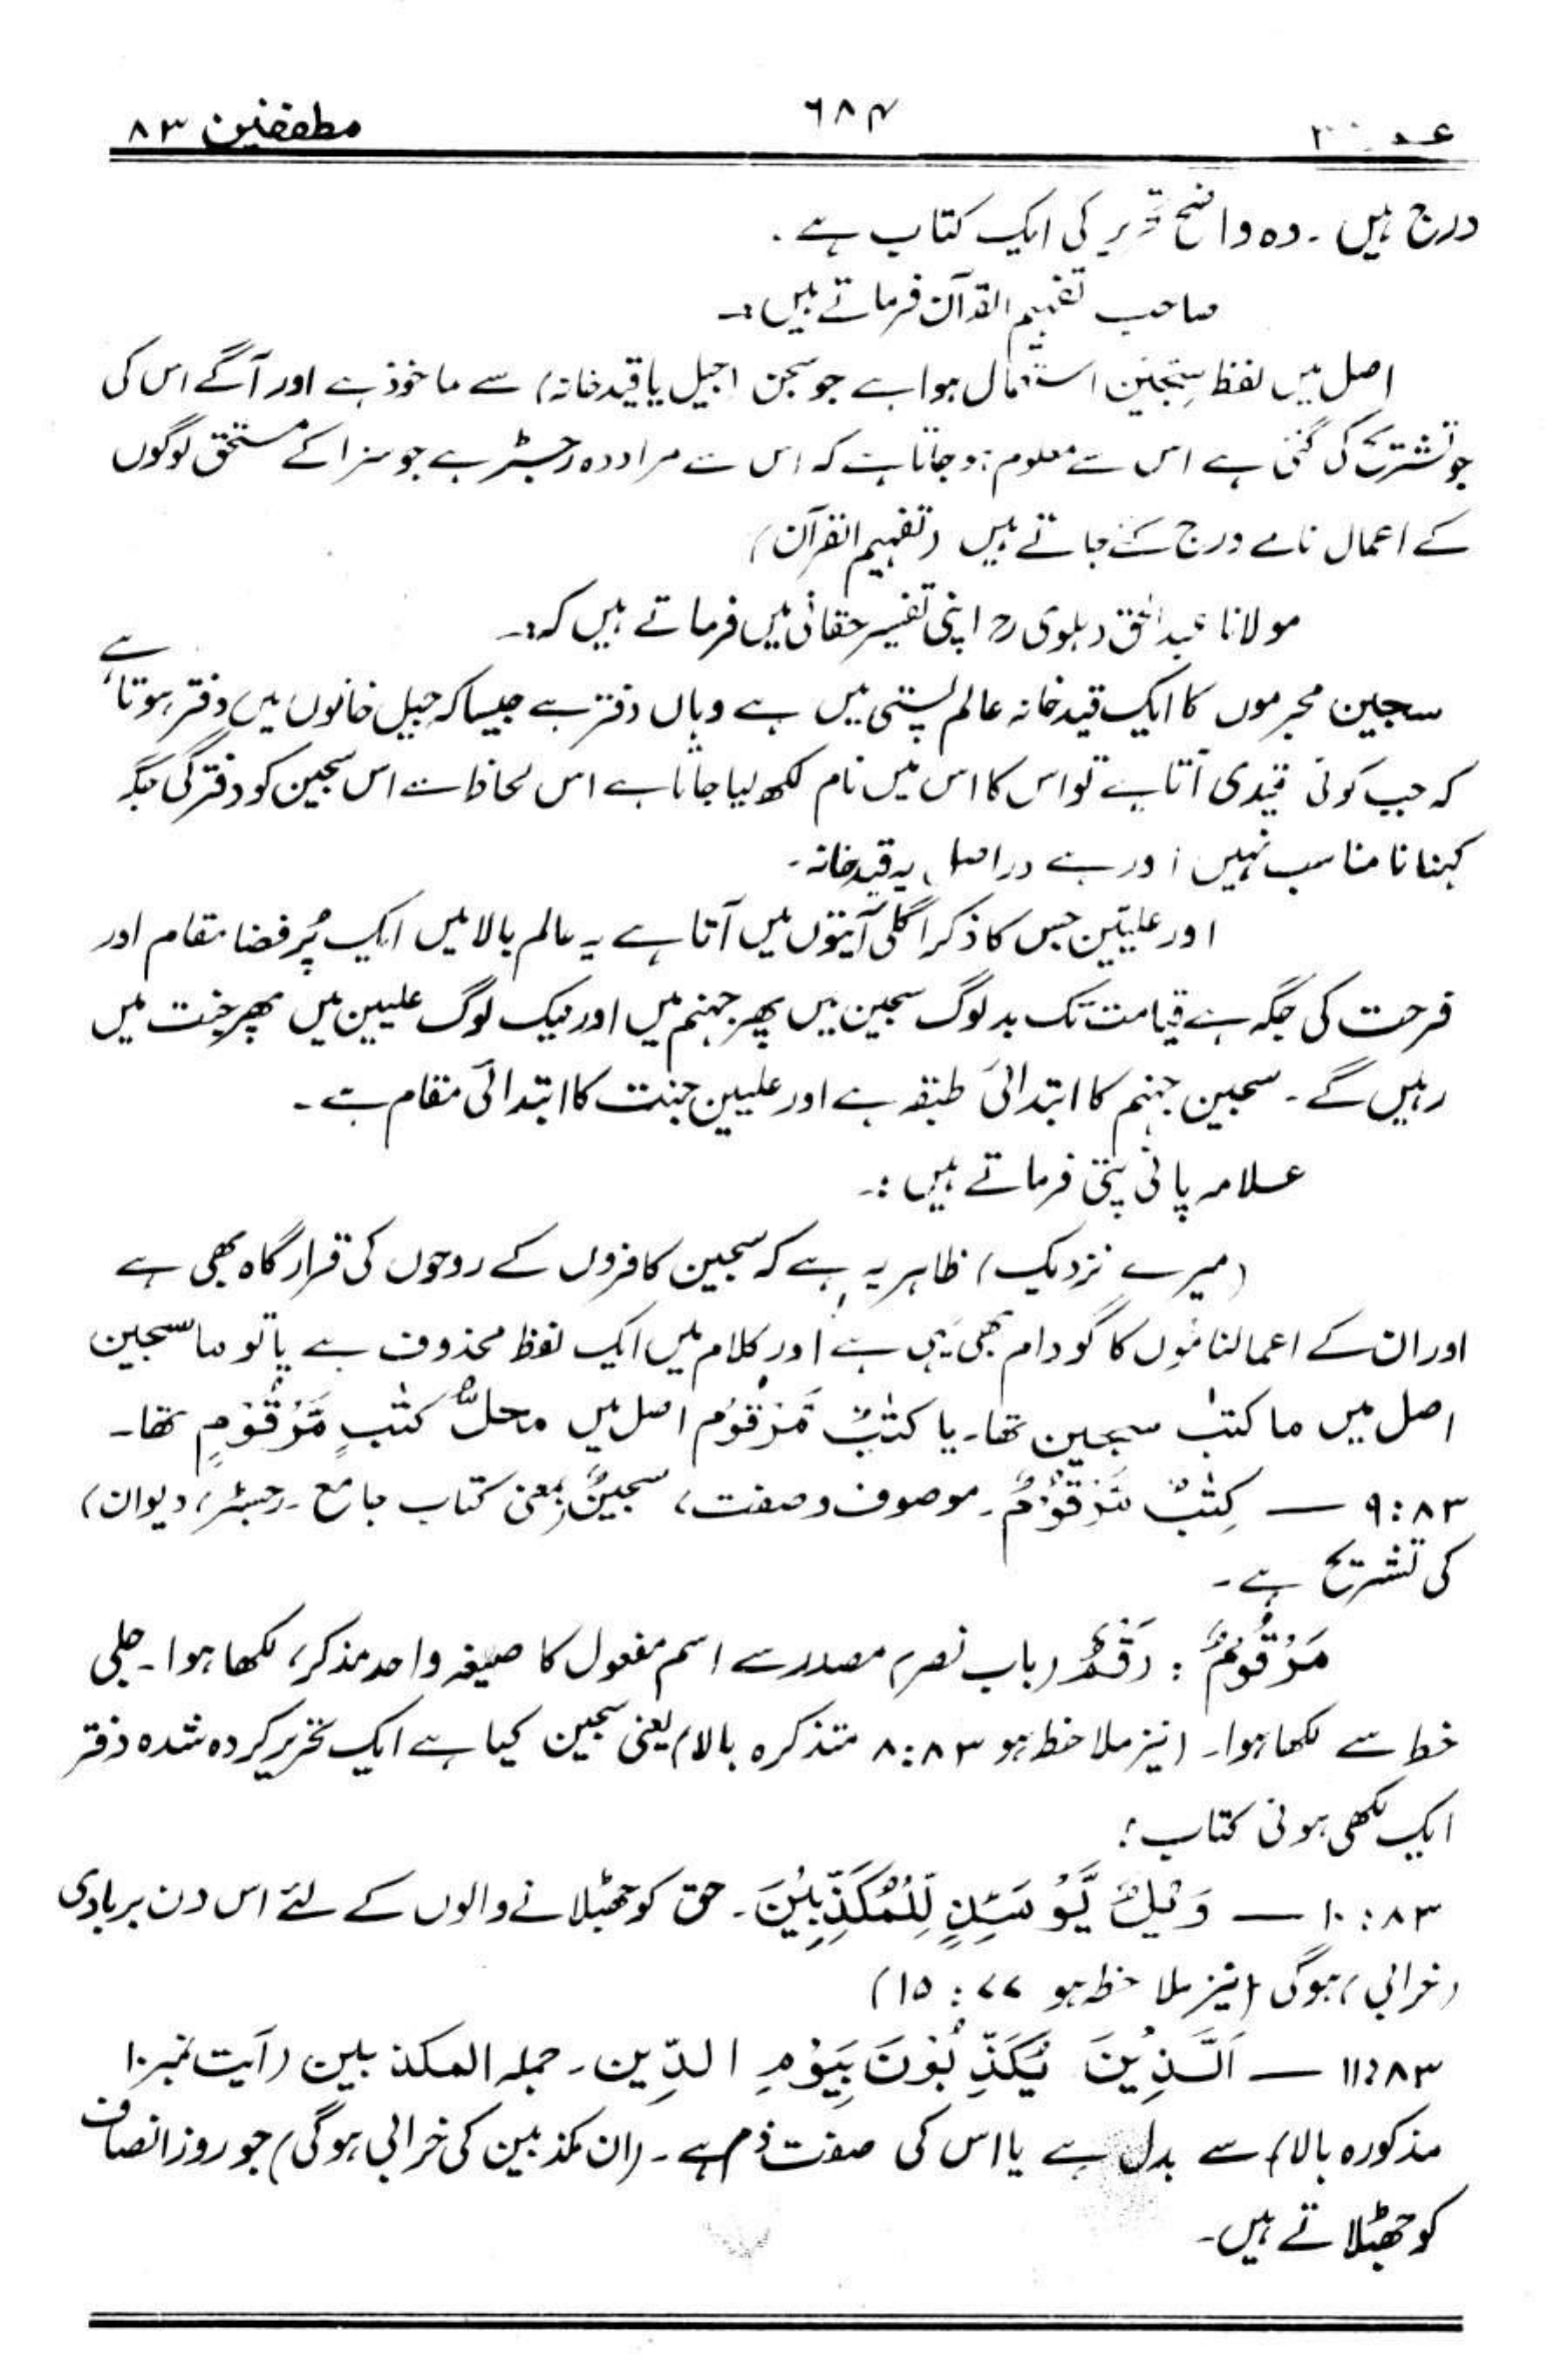 عمّ ۳۰ ۶۸۴ مطففین ۸۳
درج ہیں۔ وہ واضح تحریر کی ایک کتاب ہے۔
صاحب تفہیم القرآن فرماتے ہیں:۔
اصل میں لفظ سِجِّین استعمال ہوا ہے جو سجن (جیل یا قید خانہ) سے ماخوذ ہے اور آگے اس کی
جو تشریح کی گئی ہے اس سے معلوم ہو جاتا ہے کہ اس سے مراد وہ رجسٹر ہے جو سزا کے مستحق لوگوں
کے اعمال نامے درج کئے جاتے ہیں (تفہیم القرآن)
مولانا عبدالحق دہلوی رح اپنی تفسیر حقانی میں فرماتے ہیں کہ:۔
سجین مجرموں کا ایک قید خانہ عالم پستی میں ہے وہاں دفتر ہے جیسا کہ جیل خانوں میں دفتر ہوتا ہے
کہ جب کوئی قیدی آتا ہے تو اس کا اس میں نام لکھ لیا جاتا ہے اس لحاظ سے اس سجین کو دفتر کی جگہ
کہنا نامناسب نہیں اور ہے دراصل یہ قید خانہ۔
اور علیّین جس کا ذکر اگلی آیتوں میں آتا ہے یہ عالم بالا میں ایک پُر فضا مقام اور
فرحت کی جگہ ہے قیامت تک بد لوگ سجین میں پھر جہنم میں اور نیک لوگ علیین میں پھر جنت میں
رہیں گے۔ سجین جہنم کا ابتدائی طبقہ ہے اور علیین جنت کا ابتدائی مقام ہے۔
علامہ پانی پتی فرماتے ہیں:۔
(میرے نزدیک) ظاہر یہ ہے کہ سجین کافروں کے روحوں کی قرار گاہ بھی ہے
اور ان کے اعمالناموں کا گودام بھی یہی ہے اور کلام میں ایک لفظ محذوف ہے یا تو ما سجین
اصل میں ما کتٰب سجین تھا۔ یا کتٰبٌ مَّرْقُوْم اصل میں محلُّ کتٰبٍ مَّرْقُوْمٍ تھا۔
۸۳:۹ — کِتٰبٌ مَّرْقُوْمٌ۔ موصوف و صفت، سجینٌ (بمعنی کتاب جامع۔ رجسٹر، دیوان)
کی تشریح ہے۔
مَرْقُوْمٌ: رَقْمٌ (باب نصر) مصدر سے اسم مفعول کا صیغہ واحد مذکر، لکھا ہوا۔ جلی
خط سے لکھا ہوا۔ (نیز ملاحظہ ہو ۸۳:۸ متذکرہ بالا) یعنی سجین کیا ہے ایک تحریر کردہ شدہ دفتر
ایک لکھی ہوئی کتاب؛
۸۳:۱۰ — وَیْلٌ یَّوْمَئِذٍ لِّلْمُکَذِّبِیْنَ۔ حق کو جھٹلانے والوں کے لئے اس دن بربادی
(خرابی) ہوگی (نیز ملاحظہ ہو ۷۷:۱۵)
۸۳:۱۱ — اَلَّذِیْنَ یُکَذِّبُوْنَ بِیَوْمِ الدِّیْن۔ جملہ المکذبین (آیت نمبر ۱۰
مذکورہ بالا) سے بدل ہے یا اس کی صفت ذم ہے۔ (ان مکذبین کی خرابی ہوگی) جو روز انصاف
کو جھٹلاتے ہیں۔